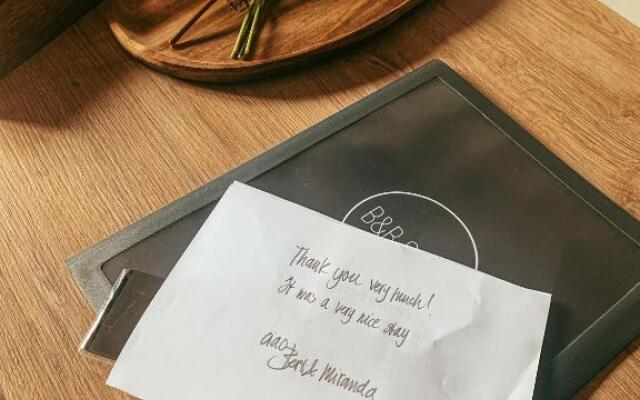 B&B
Thank you very much!
It was a very nice stay
ciao
Miranda